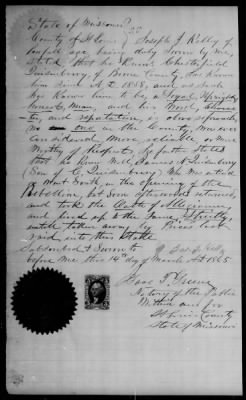 State of Missouri
County of St Louis } Joseph J. Kelly of
lawful age, being duly sworn by me,
stated that he knew Chesterfield
Quisenberry, of Boone County, has known
him since A.D. 1855, and as such
has known him to be a Loyal, Upright,
honest, Man, and his Moral, character
and reputation is above reproach,
no one in the County, was ever
considered more reliable or more
worthy of Respect, he further states
that he knew Mr. James
(Son of C. Quisenberry) Who was
South in the opening of the
Rebellion, but soon afterwards returned,
and took the Oath of Allegiance
and lived up to the same, Strictly,
until taken away by Prices last
raid into this State
Subscribed & Sworn to
before me this 14th day of March A.D. 1865
Isaac T. Greene
Notary of the Public
Within and for
St Louis County
State of Missouri